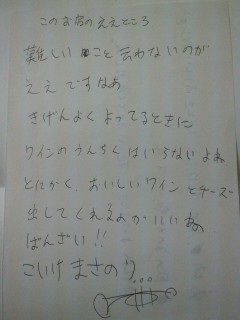 このお店のええところ
難しいこと云わないのが
ええですなあ
きげんよくよってるときに
ワインのうんちくはいらないよね
とにかく、おいしいワインとチーズ
出してくれるのがいいね
ばんざい!!
こいけまさのり...